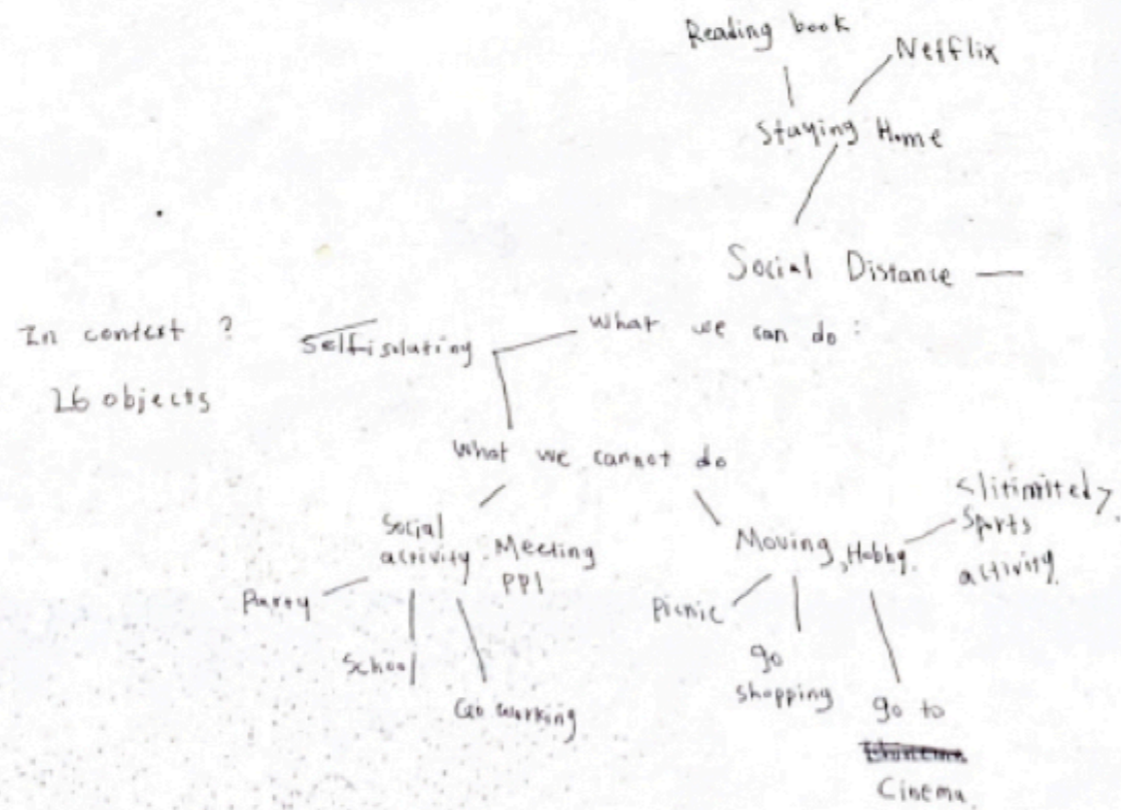 Reading book
Netflix
Staying Home
Social Distance
In context ?
Selfisolating
What we can do :
26 objects
What we cannot do
Social
activity. Meeting
PPl
Moving, Hobby.
<slitimited>
Sports
activity
Party
School
Go working
Picnic
go
shopping
go to
Cinema